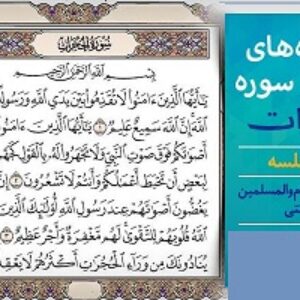 سُورَةُ الحُجُرَاتِ
بِسْمِ اللَّهِ الرَّحْمَٰنِ الرَّحِيمِ
يَٰٓأَيُّهَا الَّذِينَ ءَامَنُوا لَا تُقَدِّمُوا بَيْنَ يَدَيِ اللَّهِ وَرَسُولِهِ
اللَّهَ إِنَّ اللَّهَ سَمِيعٌ عَلِيمٌ ١ يَٰٓأَيُّهَا الَّذِينَ ءَامَنُوا
أَصْوَٰتَكُمْ فَوْقَ صَوْتِ النَّبِيِّ وَلَا تَجْهَرُوا لَهُ بِالْقَوْلِ كَجَهْرِ
لِبَعْضٍ أَن تَحْبَطَ أَعْمَٰلُكُمْ وَأَنتُمْ لَا تَشْعُرُونَ ٢
يَغُضُّونَ أَصْوَٰتَهُمْ عِندَ رَسُولِ اللَّهِ أُولَٰٓئِكَ الَّذِينَ
اللَّهُ قُلُوبَهُمْ لِلتَّقْوَىٰ لَهُم مَّغْفِرَةٌ وَأَجْرٌ عَظِيمٌ ٣
يُنَادُونَكَ مِن وَرَآءِ الْحُجُرَٰتِ أَكْثَرُهُمْ لَا يَعْقِ
ه‌های
سوره
ات
لسه
م والمسلمین